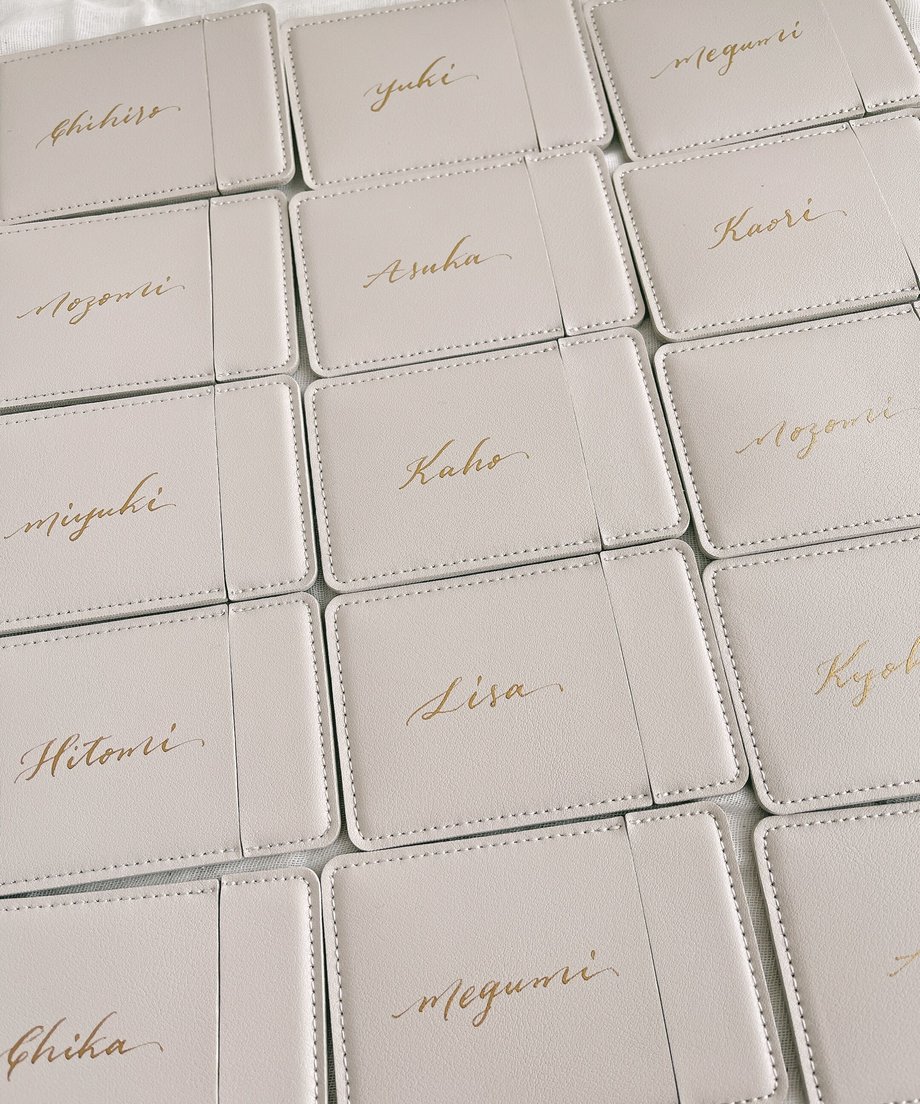 Chihiro
Yuki
Megumi
Nozomi
Asuka
Kaori
Miyuki
Kaho
Nozomi
Hitomi
Lisa
Chika
Megumi